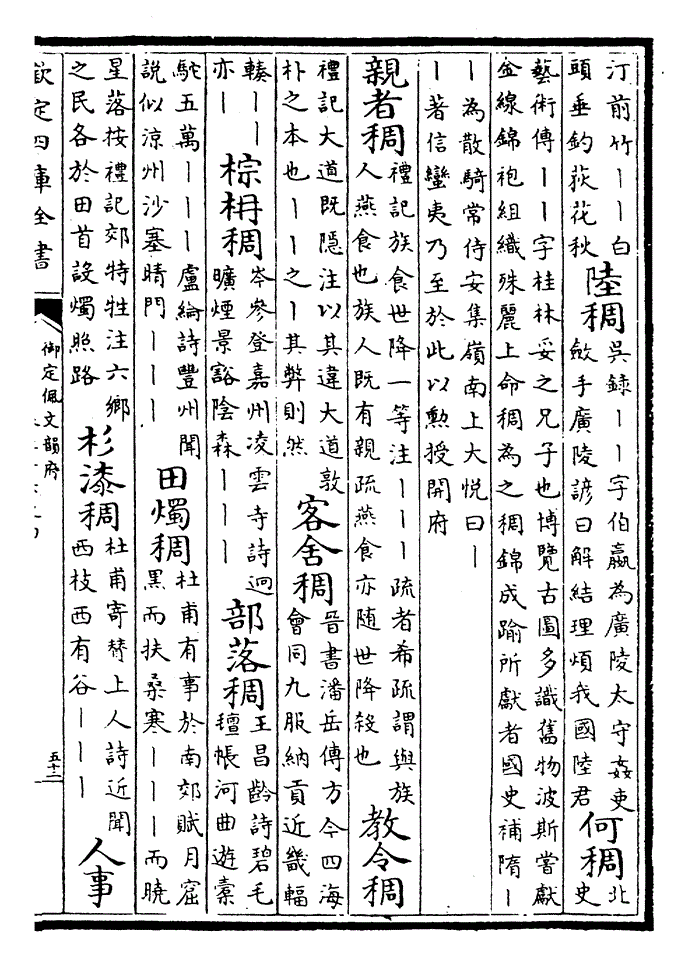 汀前竹丨丨白
頭垂釣荻花秋
陸稠
吳録丨丨字伯嬴為廣陵太守姦吏
斂手廣陵諺曰解結理煩我國陸君
何稠
北
史
藝術傳丨丨字桂林妥之兄子也博覽古圖多識舊物波斯嘗獻
金線錦袍組織殊麗上命稠為之稠錦成踰所獻者國史補隋丨
丨為散騎常侍安集嶺南上大悦曰丨
丨著信蠻夷乃至於此以勲授開府
親者稠
禮記族食世降一等注丨丨丨疏者希疏謂與族
人燕食也族人既有親疏燕食亦随世降殺也
教令稠
禮記大道既隱注以其違大道敦
朴之本也丨丨之丨其弊則然
客舍稠
晉書潘岳傳方今四海
會同九服納貢近畿輻
輳丨丨
亦丨
棕枏稠
岑參登嘉州凌雲寺詩迥
曠煙景豁陰森丨丨丨
部落稠
王昌齡詩碧毛
氊帳河曲遊橐
駝五萬丨丨丨盧綸詩豐州聞
說似涼州沙塞晴門丨丨丨
田燭稠
杜甫有事於南郊賦月窟
黑而扶桑寒丨丨丨而曉
星落按禮記郊特牲注六鄉
之民各於田首設燭照路
杉漆稠
杜甫寄替上人詩近聞
西枝西有谷丨丨丨
人事
欽定四庫全書
御定佩文韻府
五十二